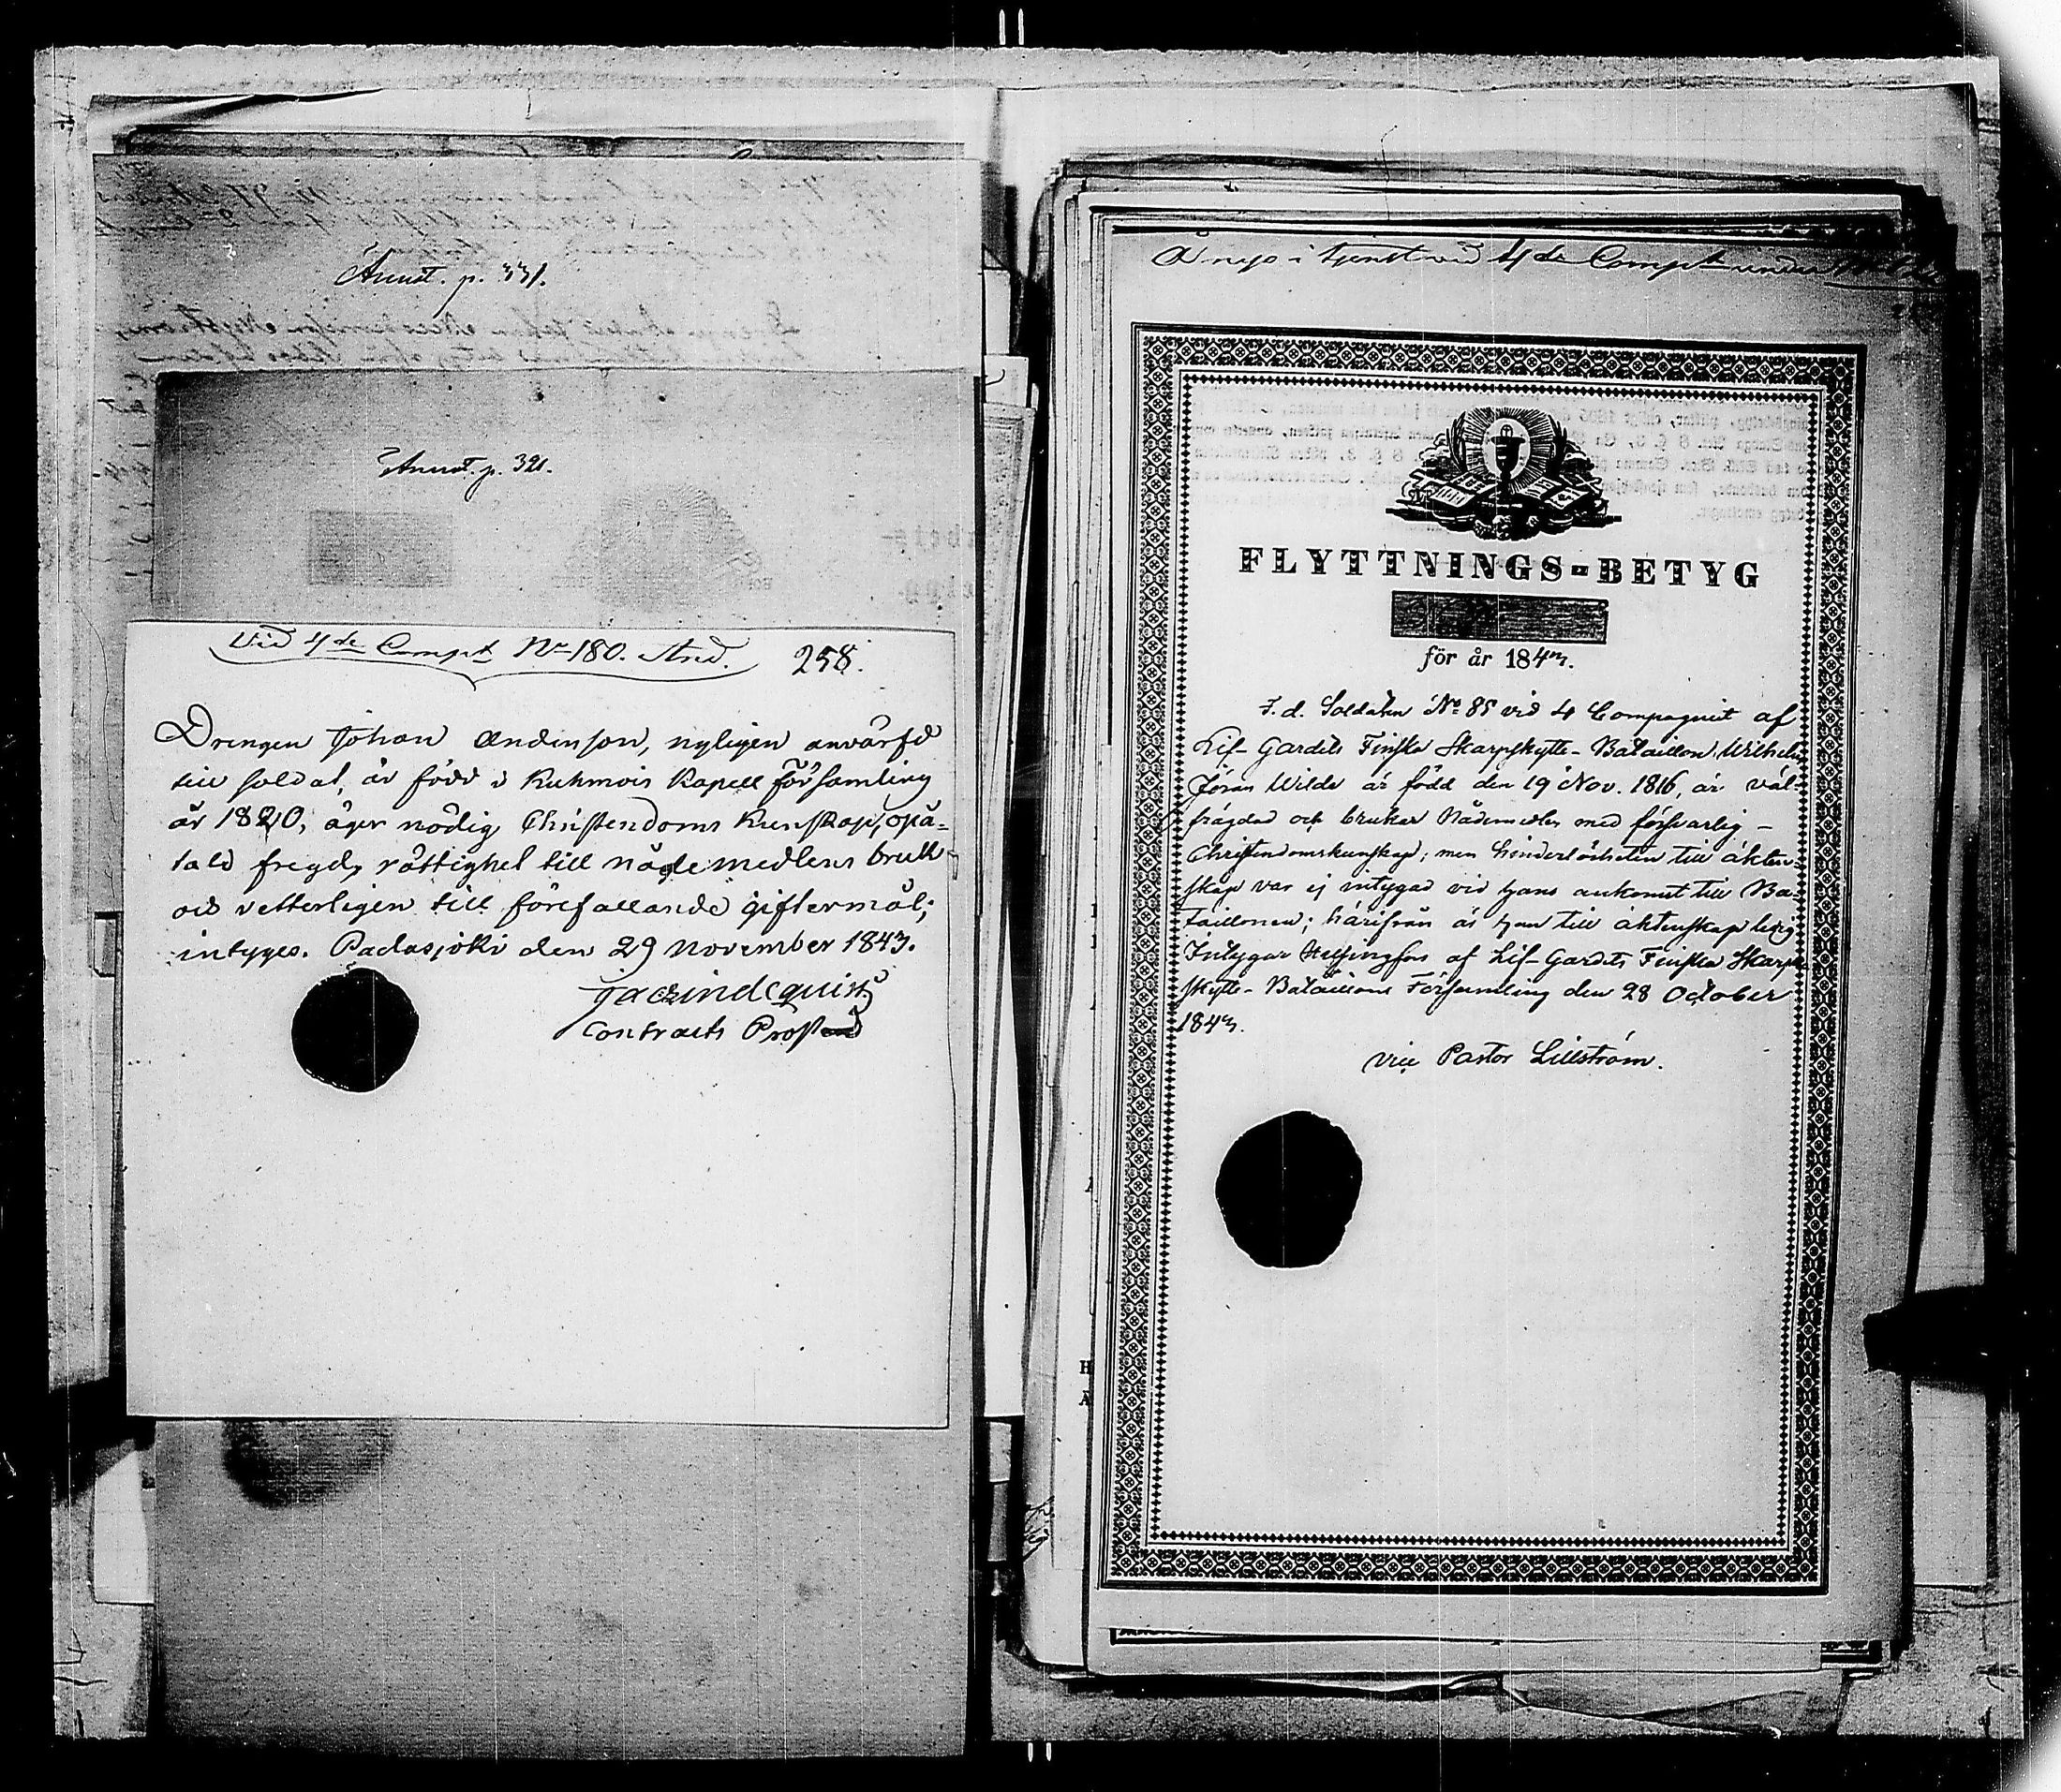 Anmt. p. 331.
Anmt. p. 321.
Vid 4de Compt No 180. And.
258.
Drengen Johan Andersson, nyligen anvärfd
till soldat, är född i Kuhmois Kapell Församling
år 1820; äger nödig Christendoms Kunskap, opå-
tald fregd, rättighet till nådemedlens bruk
och vetterligen till förefallande giftermål;
intyges. Padasjoki den 29 November 1843.
Contracts Prosten
Å nyo i tjenst vid 4de Compt under
FLYTTNINGS-BETYG
för år 1843.
F. d. Soldaten No 85 vid 4 Compagniet af
Lif-Gardets Finska Skarpskytte-Bataillon, Wilhelm
Jöran Wilde är född den 19 Nov. 1816, är väl-
frägdad och brukar Nådemedlen med försvarlig
Christendomskunskap; men hinderlösheten till äkten-
skap var ej intygad vid hans ankomst till Ba-
taillonen; härifrån är han till äktenskap ledig
Intygar Helsingfors af Lif-Gardets Finska Skarp-
skytte-Bataillons Församling den 28 October
1843.
vice Pastor Lillström.